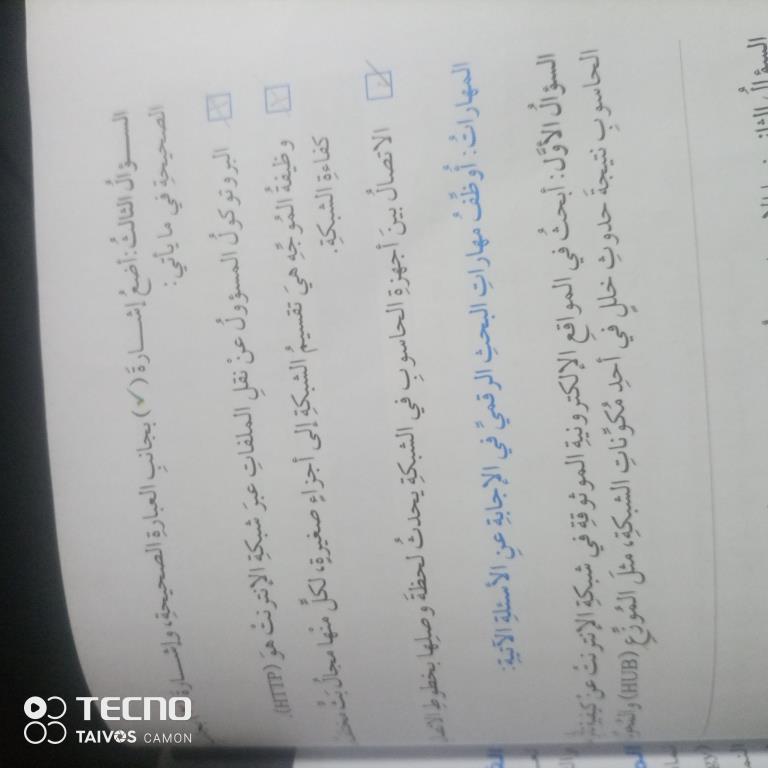 السؤالُ الثالثُ: أضعُ إشارةَ (✓) بجانبِ العبارةِ الصحيحةِ، وإشارةَ
الصحيحةِ في ما يأتي:
البروتوكولُ المسؤولُ عنْ نقلِ الملفاتِ عبرَ شبكةِ الإنترنتْ هوَ (HTTP).
وظيفةُ المُوجِّهِ هيَ تقسيمُ الشبكةِ إلى أجزاءٍ صغيرةٍ، لكلٍّ منْها مجالُ بَثٍّ
كفاءةِ الشبكةِ.
الاتصالُ بينَ أجهزةِ الحاسوبِ في الشبكةِ يحدثُ لحظةَ وصلِها بخطوطِ
المهاراتُ: أوظِّفُ مهاراتِ البحثِ الرقميِّ في الإجابةِ عنِ الأسئلةِ الآتيةِ:
السؤالُ الأوَّلُ: أبحثُ في المواقعِ الإلكترونيةِ الموثوقةِ في شبكةِ الإنترنتْ عنْ
الحاسوبِ نتيجةَ حدوثِ خللٍ في أحدِ مُكوِّناتِ الشبكةِ، مثلَ المُوزِّعِ (HUB)
السؤالُ
TECNO
TAIVOS CAMON